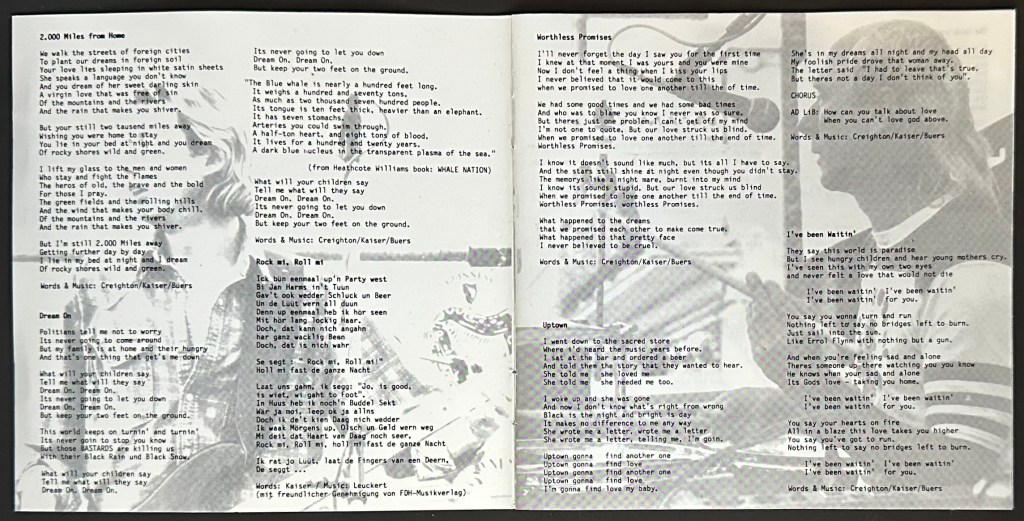 2.000 Miles from Home
We walk the streets of foreign cities
To plant our dreams in foreign soil
Your love lies sleeping in white satin sheets
She speaks a language you don't know
And you dream of her sweet darling skin
A virgin love that was free of sin
Of the mountains and the rivers
And the rain that makes you shiver.
But your still two tausend miles away
Wishing you were home to stay
You lie in your bed at night and you dream
Of rocky shores wild and green.
I lift my glass to the men and women
Who stay and fight the flames
The heros of old, the brave and the bold
For those I pray.
The green fields and the rolling hills
And the wind that makes your body chill.
Of the mountains and the rivers
And the rain that makes you shiver.
But I'm still 2.000 Miles away
Getting further day by day
I lie in my bed at night and I dream
Of rocky shores wild and green.
Words & Music: Creighton/Kaiser/Buers
Dream On
Politians tell me not to worry
Its never going to come around
But my family is at home and their hungry
And that's one thing that get's me down.
What will your children say
Tell me what will they say
Dream On. Dream On.
Its never going to let you down
Dream On. Dream On.
But keep your two feet on the ground.
This world keeps on turnin' and turnin'
Its never goin to stop you know
But those BASTARDS are killing us
With their Black Rain und Black Snow.
What will your children say
Tell me what will they say
Dream On. Dream On.
Its never going to let you down
Dream On. Dream On.
But keep your two feet on the ground.
"The Blue whale is nearly a hundred feet long.
It weighs a hundred and seventy tons,
As much as two thousand seven hundred people.
Its tongue is ten feet thick, heavier than an elephant.
It has seven stomachs,
Arteries you could swim through,
A half-ton heart, and eight tons of blood.
It lives for a hundred and twenty years,
A dark blue nucleus in the transparent plasma of the sea."
(from Heathcote Williams book: WHALE NATION)
What will your children say
Tell me what will they say
Dream On. Dream On.
Its never going to let you down
Dream On. Dream On.
But keep your two feet on the ground.
Words & Music: Creighton/Kaiser/Buers
Rock mi, Roll mi
Ick bün eenmaal up'n Party west
Bi Jan Harms in't Tuun
Gav't ook wedder Schluck un Beer
Un de Lüüt wern all duun
Denn up eenmaal heb ik hör seen
Mit hör lang lockig Haar.
Doch, dat kann nich angahn
har ganz wacklig Been
Doch, dat is nich wahr
Se segt : " Rock mi, Roll mi!"
Holl mi fast de ganze Nacht
Laat uns gahn, ik segg: "Jo, is good,
is wiet, wi gaht to foot".
In Huus heb ik noch'n Buddel Sekt
War ja moi, leep ok ja allns
Doch ik de't kien Daag nich wedder
Ik waak Mörgens up, Olsch un Geld wern weg
Mi deit dat Haart van Daag noch seer,
Rock mi, Roll mi, holl mi fast de ganze Nacht
Ik rat jo Lüüt, laat de Fingers van een Deern.
De seggt ...
Words: Kaiser / Music: Leuckert
(mit freundlicher Genehmigung von FDH-Musikverlag)
Worthless Promises
I'll never forget the day I saw you for the first time
I knew at that moment I was yours and you were mine
Now I don't feel a thing when I kiss your lips
I never believed that it would come to this
when we promised to love one another till the of time.
We had some good times and we had some bad times
And who was to blame you know I never was so sure.
But theres just one problem I can't get off my mind
I'm not one to quote, But our love struck us blind.
When we promised to love one another till the end of time.
Worthless Promises.
I know it doesn't sound like much, but its all I have to say.
And the stars still shine at night even though you didn't stay.
The memorys like a night mare, burnt into my mind
I know its sounds stupid. But our love struck us blind
When we promised to love one another till the end of time.
Worthless Promises, worthless Promises.
What happened to the dreams
that we promised each other to make come true.
What happened to that pretty face
I never believed to be cruel.
Words & Music: Creighton/Kaiser/Buers
Uptown
I went down to the sacred store
Where i'd heard the music years before.
I sat at the bar and ordered a beer
And told them the story that they wanted to hear.
She told me she loved me
She told me she needed me too.
I woke up and she was gone
And now I don't know what's right from wrong
Black is the night and bright is day
It makes no difference to me any way
She wrote me a letter, wrote me a letter
She wrote me a letter, telling me, I'm goin.
Uptown gonna find another one
Uptown gonna find love
Uptown gonna find another one
Uptown gonna find love
I'm gonna find love my baby.
She's in my dreams all night and my head all day
My foolish pride drove that woman away.
The letter said "I had to leave that's true,
But theres not a day I don't think of you".
CHORUS
AD LiB: How can you talk about love
When you can't love god above.
Words & Music: Creighton/Kaiser/Buers
I've been Waitin'
They say this world is paradise
But I see hungry children and hear young mothers cry.
I've seen this with my own two eyes
and never felt a love that would not die
I've been waitin' I've been waitin'
I've been waitin' for you.
You say you wonna turn and run
Nothing left to say no bridges left to burn.
Just sail into the sun.
Like Errol Flynn with nothing but a gun.
And when you're feeling sad and alone
Theres someone up there watching you you know
He knows when your sad and alone
Its Gods love - taking you home.
I've been waitin' I've been waitin'
I've been waitin' for you.
You say your hearts on fire
All in a blaze this love takes you higher
You say you've got to run.
Nothing left to say no bridges left to burn.
I've been waitin' I've been waitin'
I've been waitin' for you.
Words & Music: Creighton/Kaiser/Buers